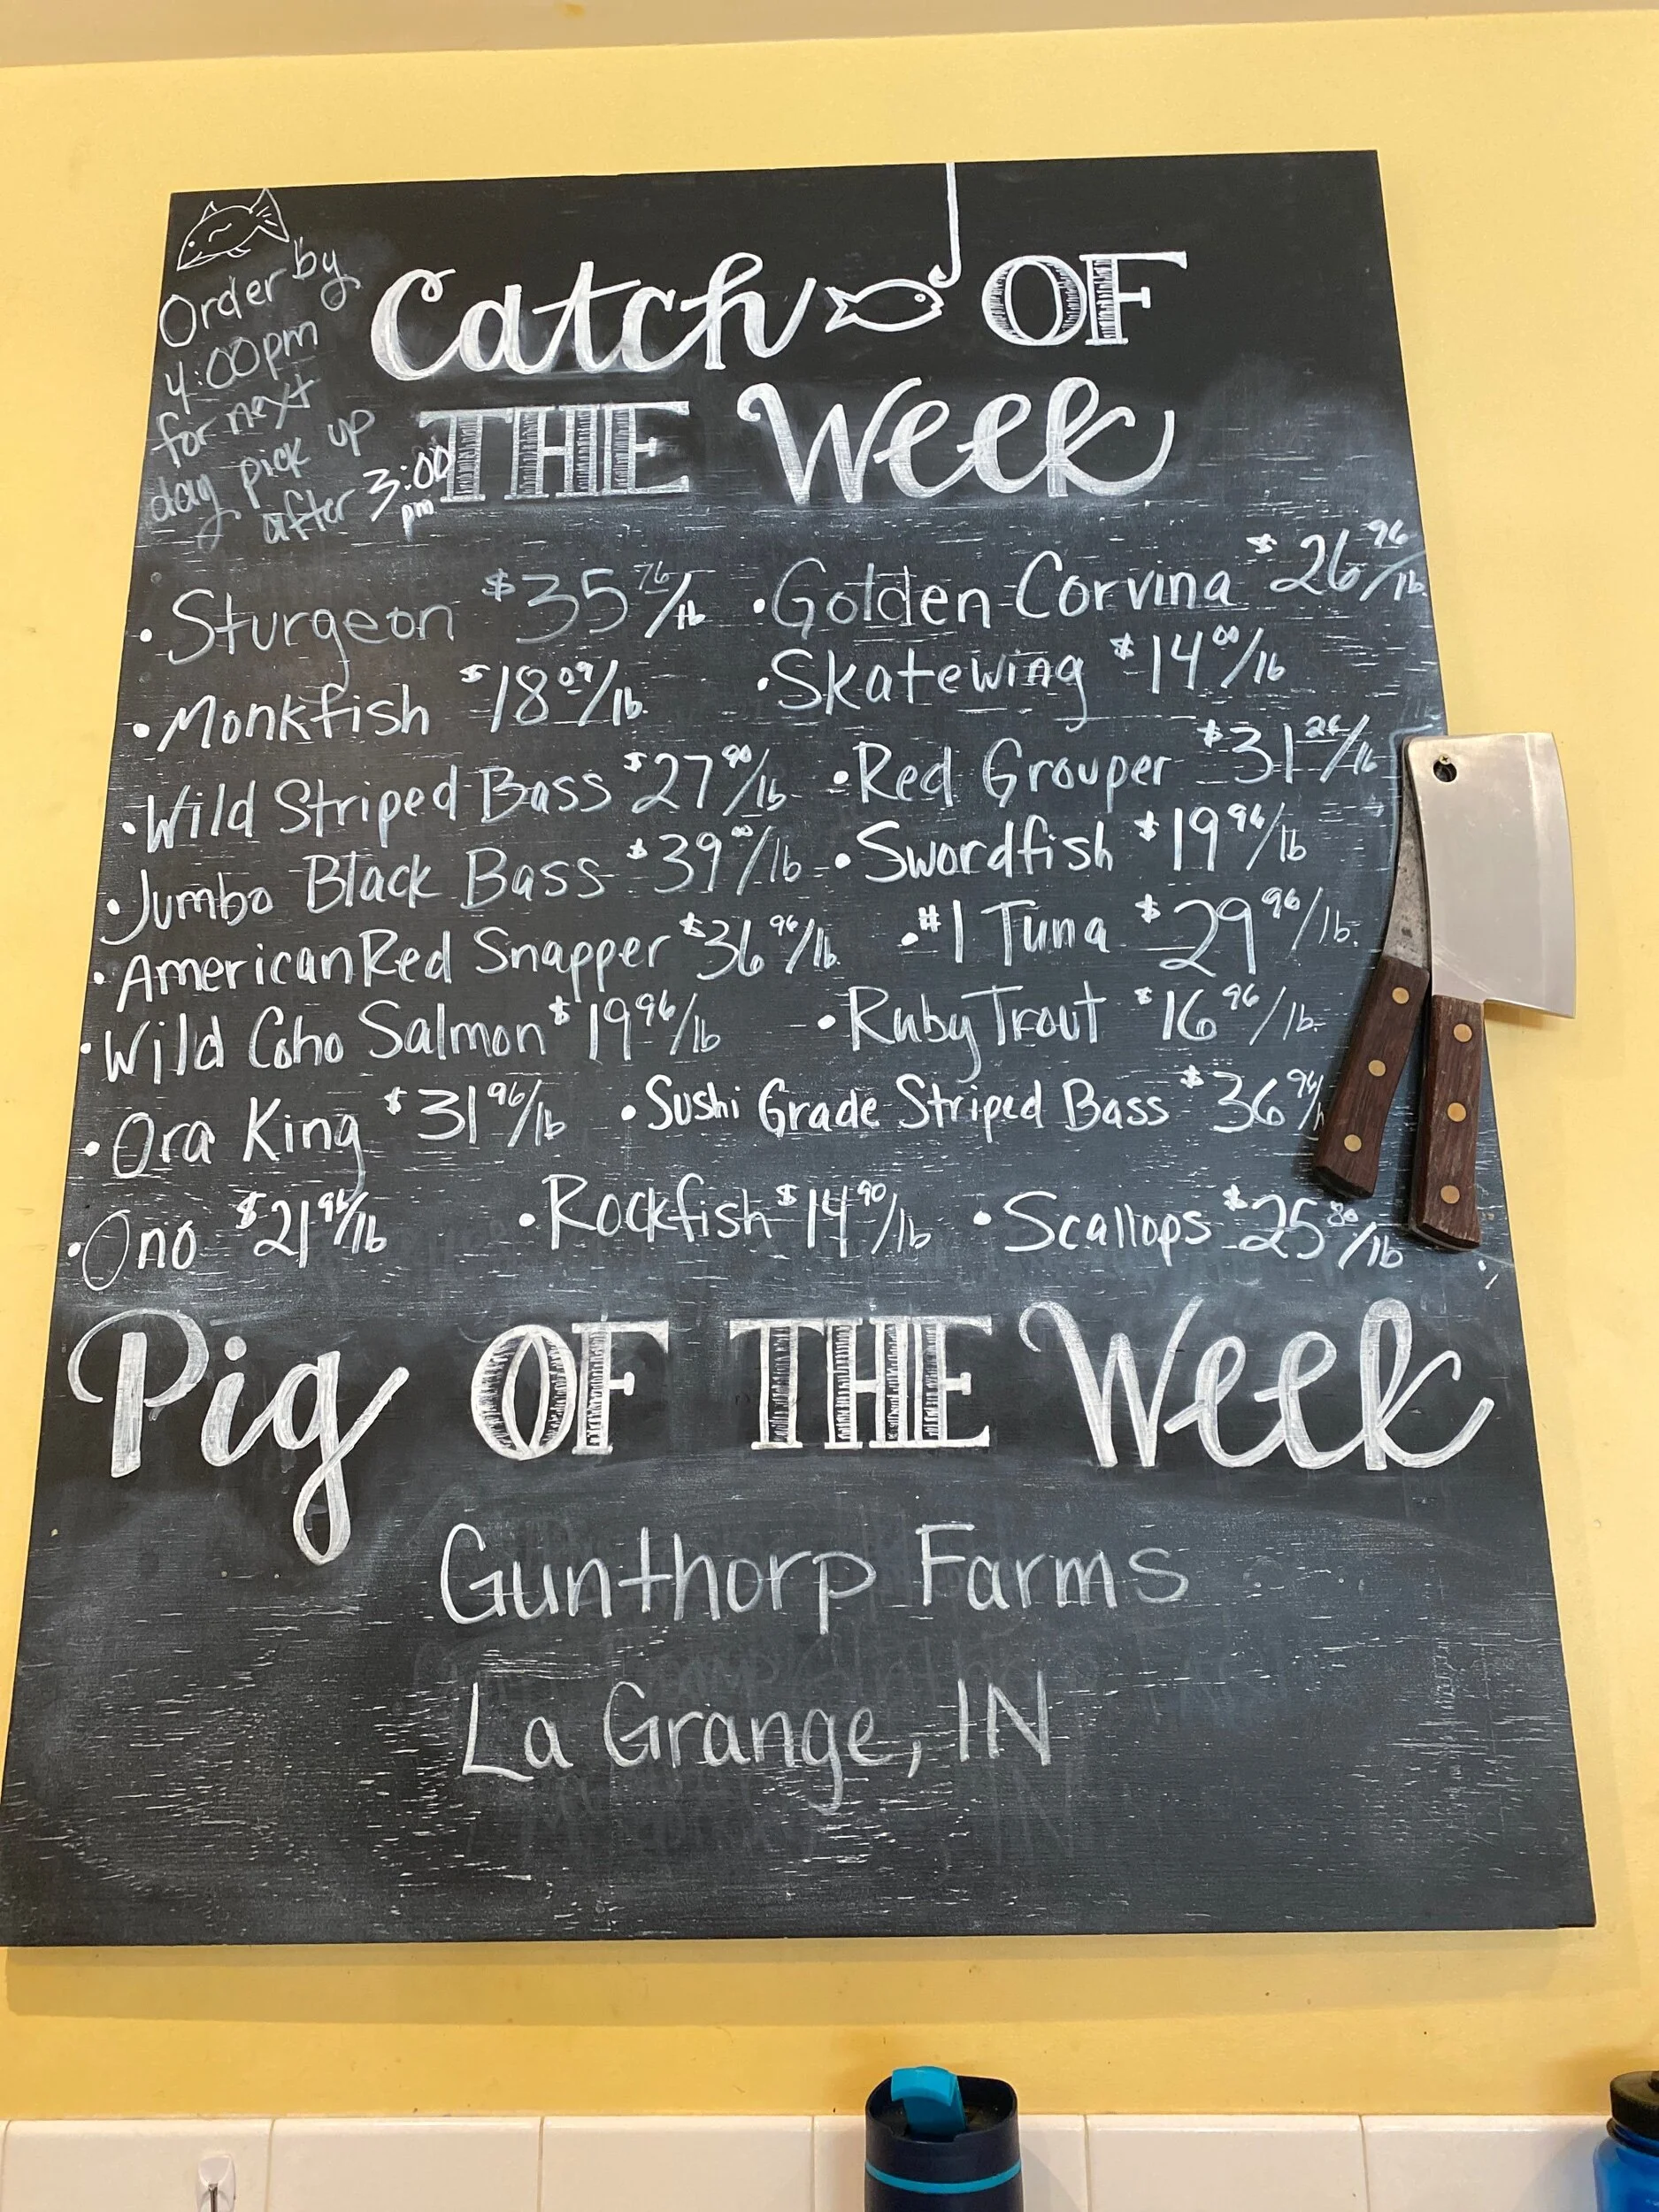 Order by
4:00pm
for next
day pick up
after 3:00
pm
Catch OF
THE Week
• Sturgeon $35 76/lb
• Golden Corvina $26 96/lb
• Monkfish $18 09/lb
• Skatewing $14 00/lb
• Wild Striped Bass $27 90/lb
• Red Grouper $31 26/lb
• Jumbo Black Bass $39 00/lb
• Swordfish $19 96/lb
• American Red Snapper $36 96/lb
• #1 Tuna $29 96/lb
• Wild Coho Salmon $19 96/lb
• Ruby Trout $16 96/lb
• Ora King $31 96/lb
• Sushi Grade Striped Bass $36 96/
• Ono $21 96/lb
• Rockfish $14 90/lb
• Scallops $25 80/lb
Pig OF THE Week
Gunthorp Farms
La Grange, IN